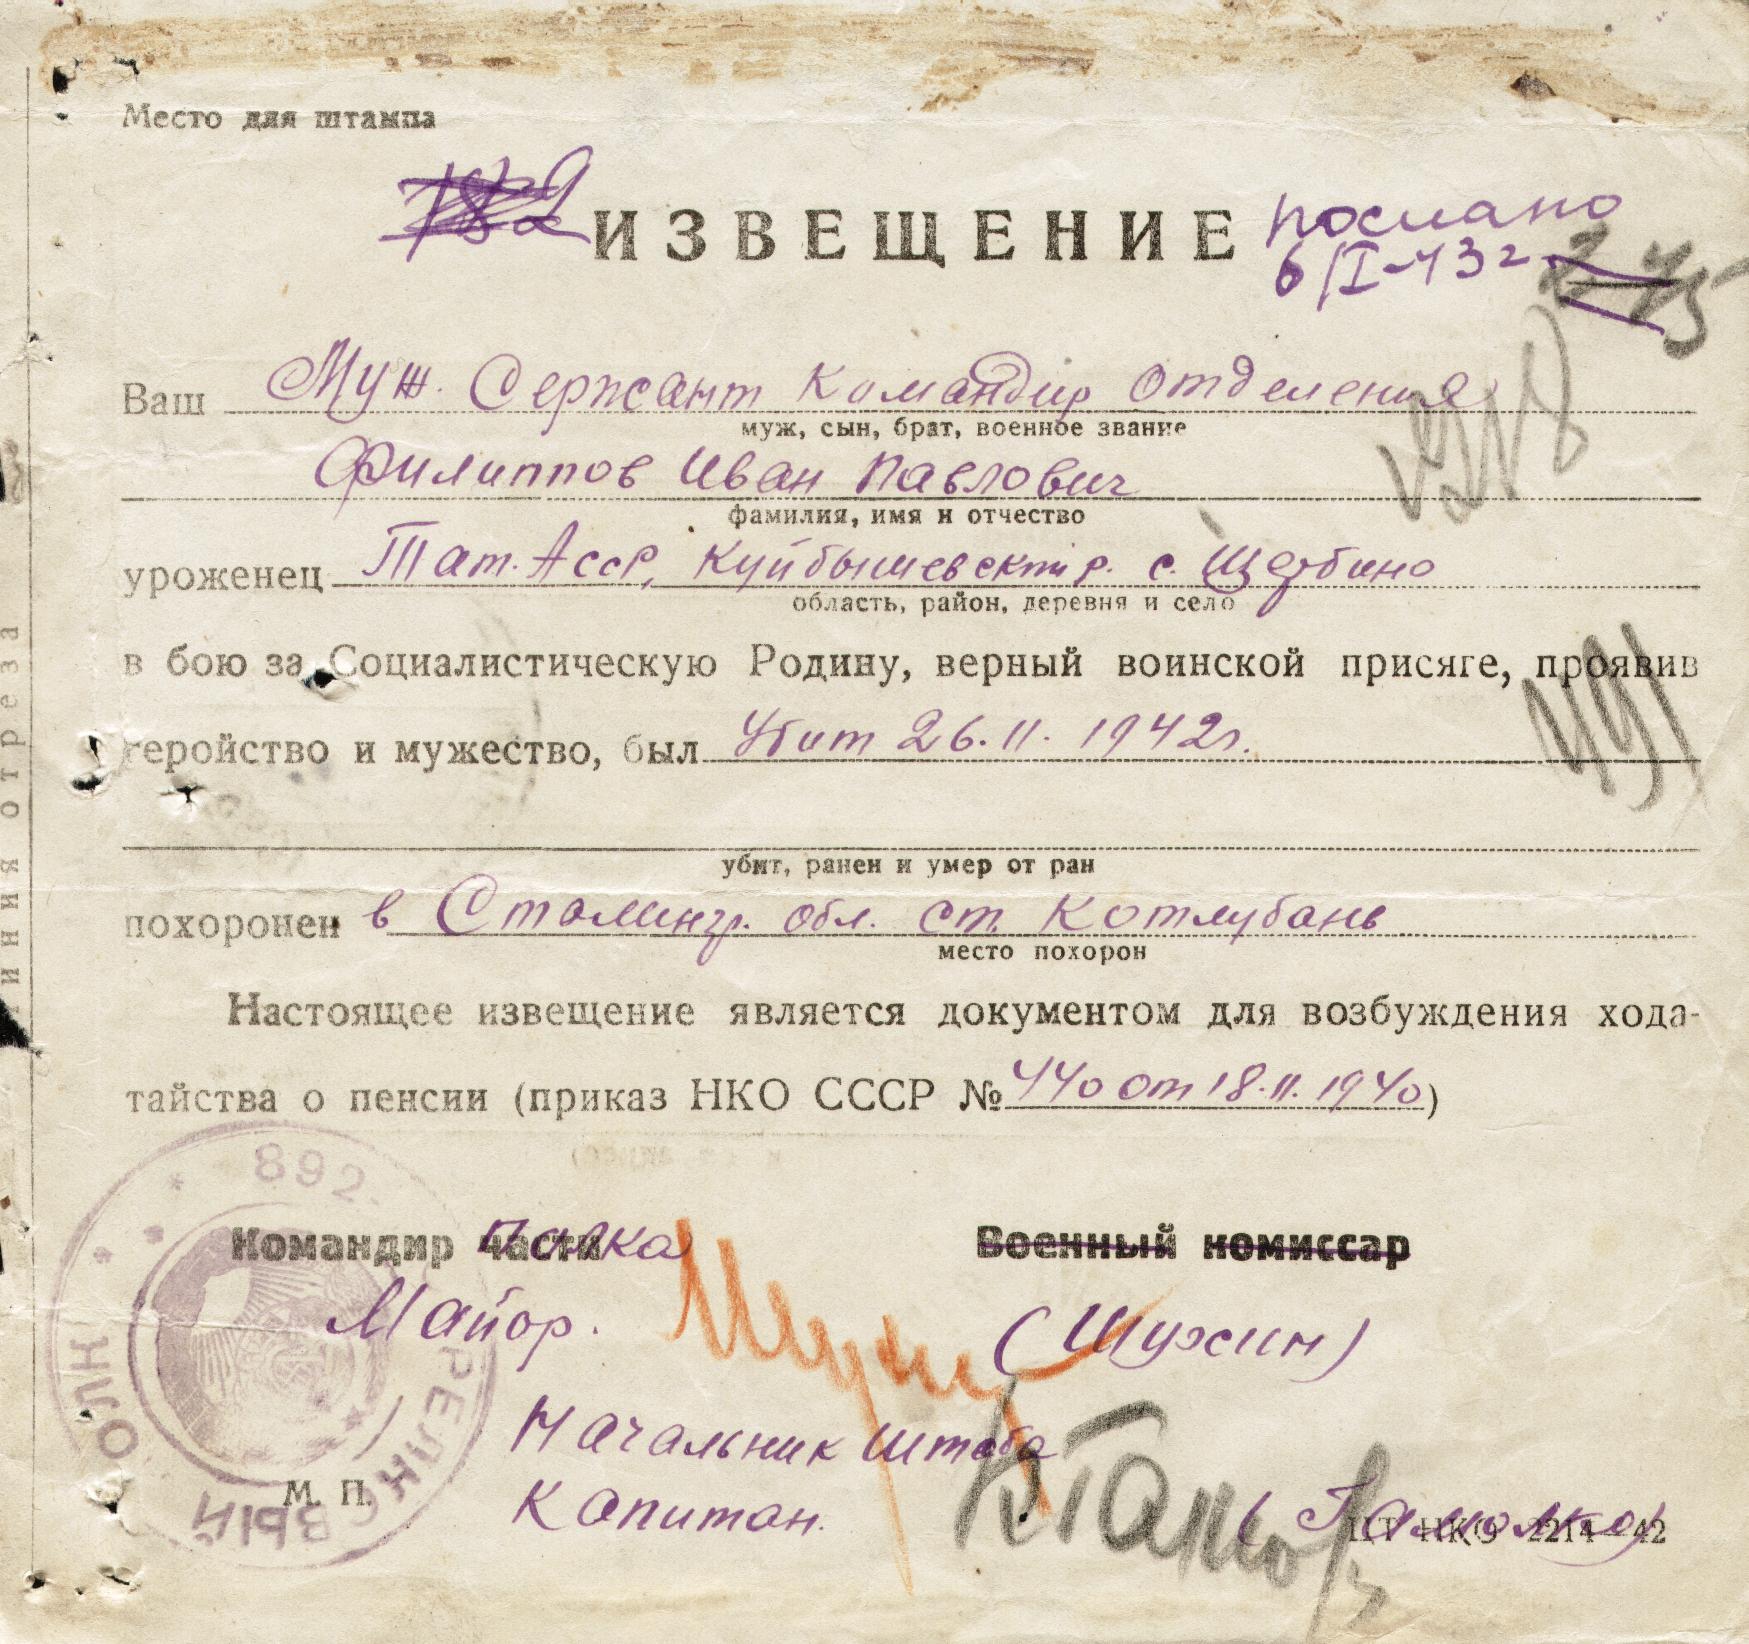 Место для штампа
ИЗВЕЩЕНИЕ послано
6/I-43г
Ваш Муж. Сержант командир отделения
муж, сын, брат, военное звание
Филиппов Иван Павлович
фамилия, имя и отчество
уроженец Тат. Асср, Куйбышевский р. с. Щербино
область, район, деревня и село
в бою за Социалистическую Родину, верный воинской присяге, проявив
геройство и мужество, был Убит 26.11.1942г.
убит, ранен и умер от ран
похоронен в Сталингр. обл. ст. Котлубань
место похорон
Настоящее извещение является документом для возбуждения хода-
тайства о пенсии (приказ НКО СССР № 440 от 18.11.1940)
892 СТРЕЛКОВЫЙ ПОЛК
Командир части полка Военный комиссар
Майор. (Шужин)
Начальник штаба
М. П. Капитан.
ЦТ НКО 2214—42
линия отреза